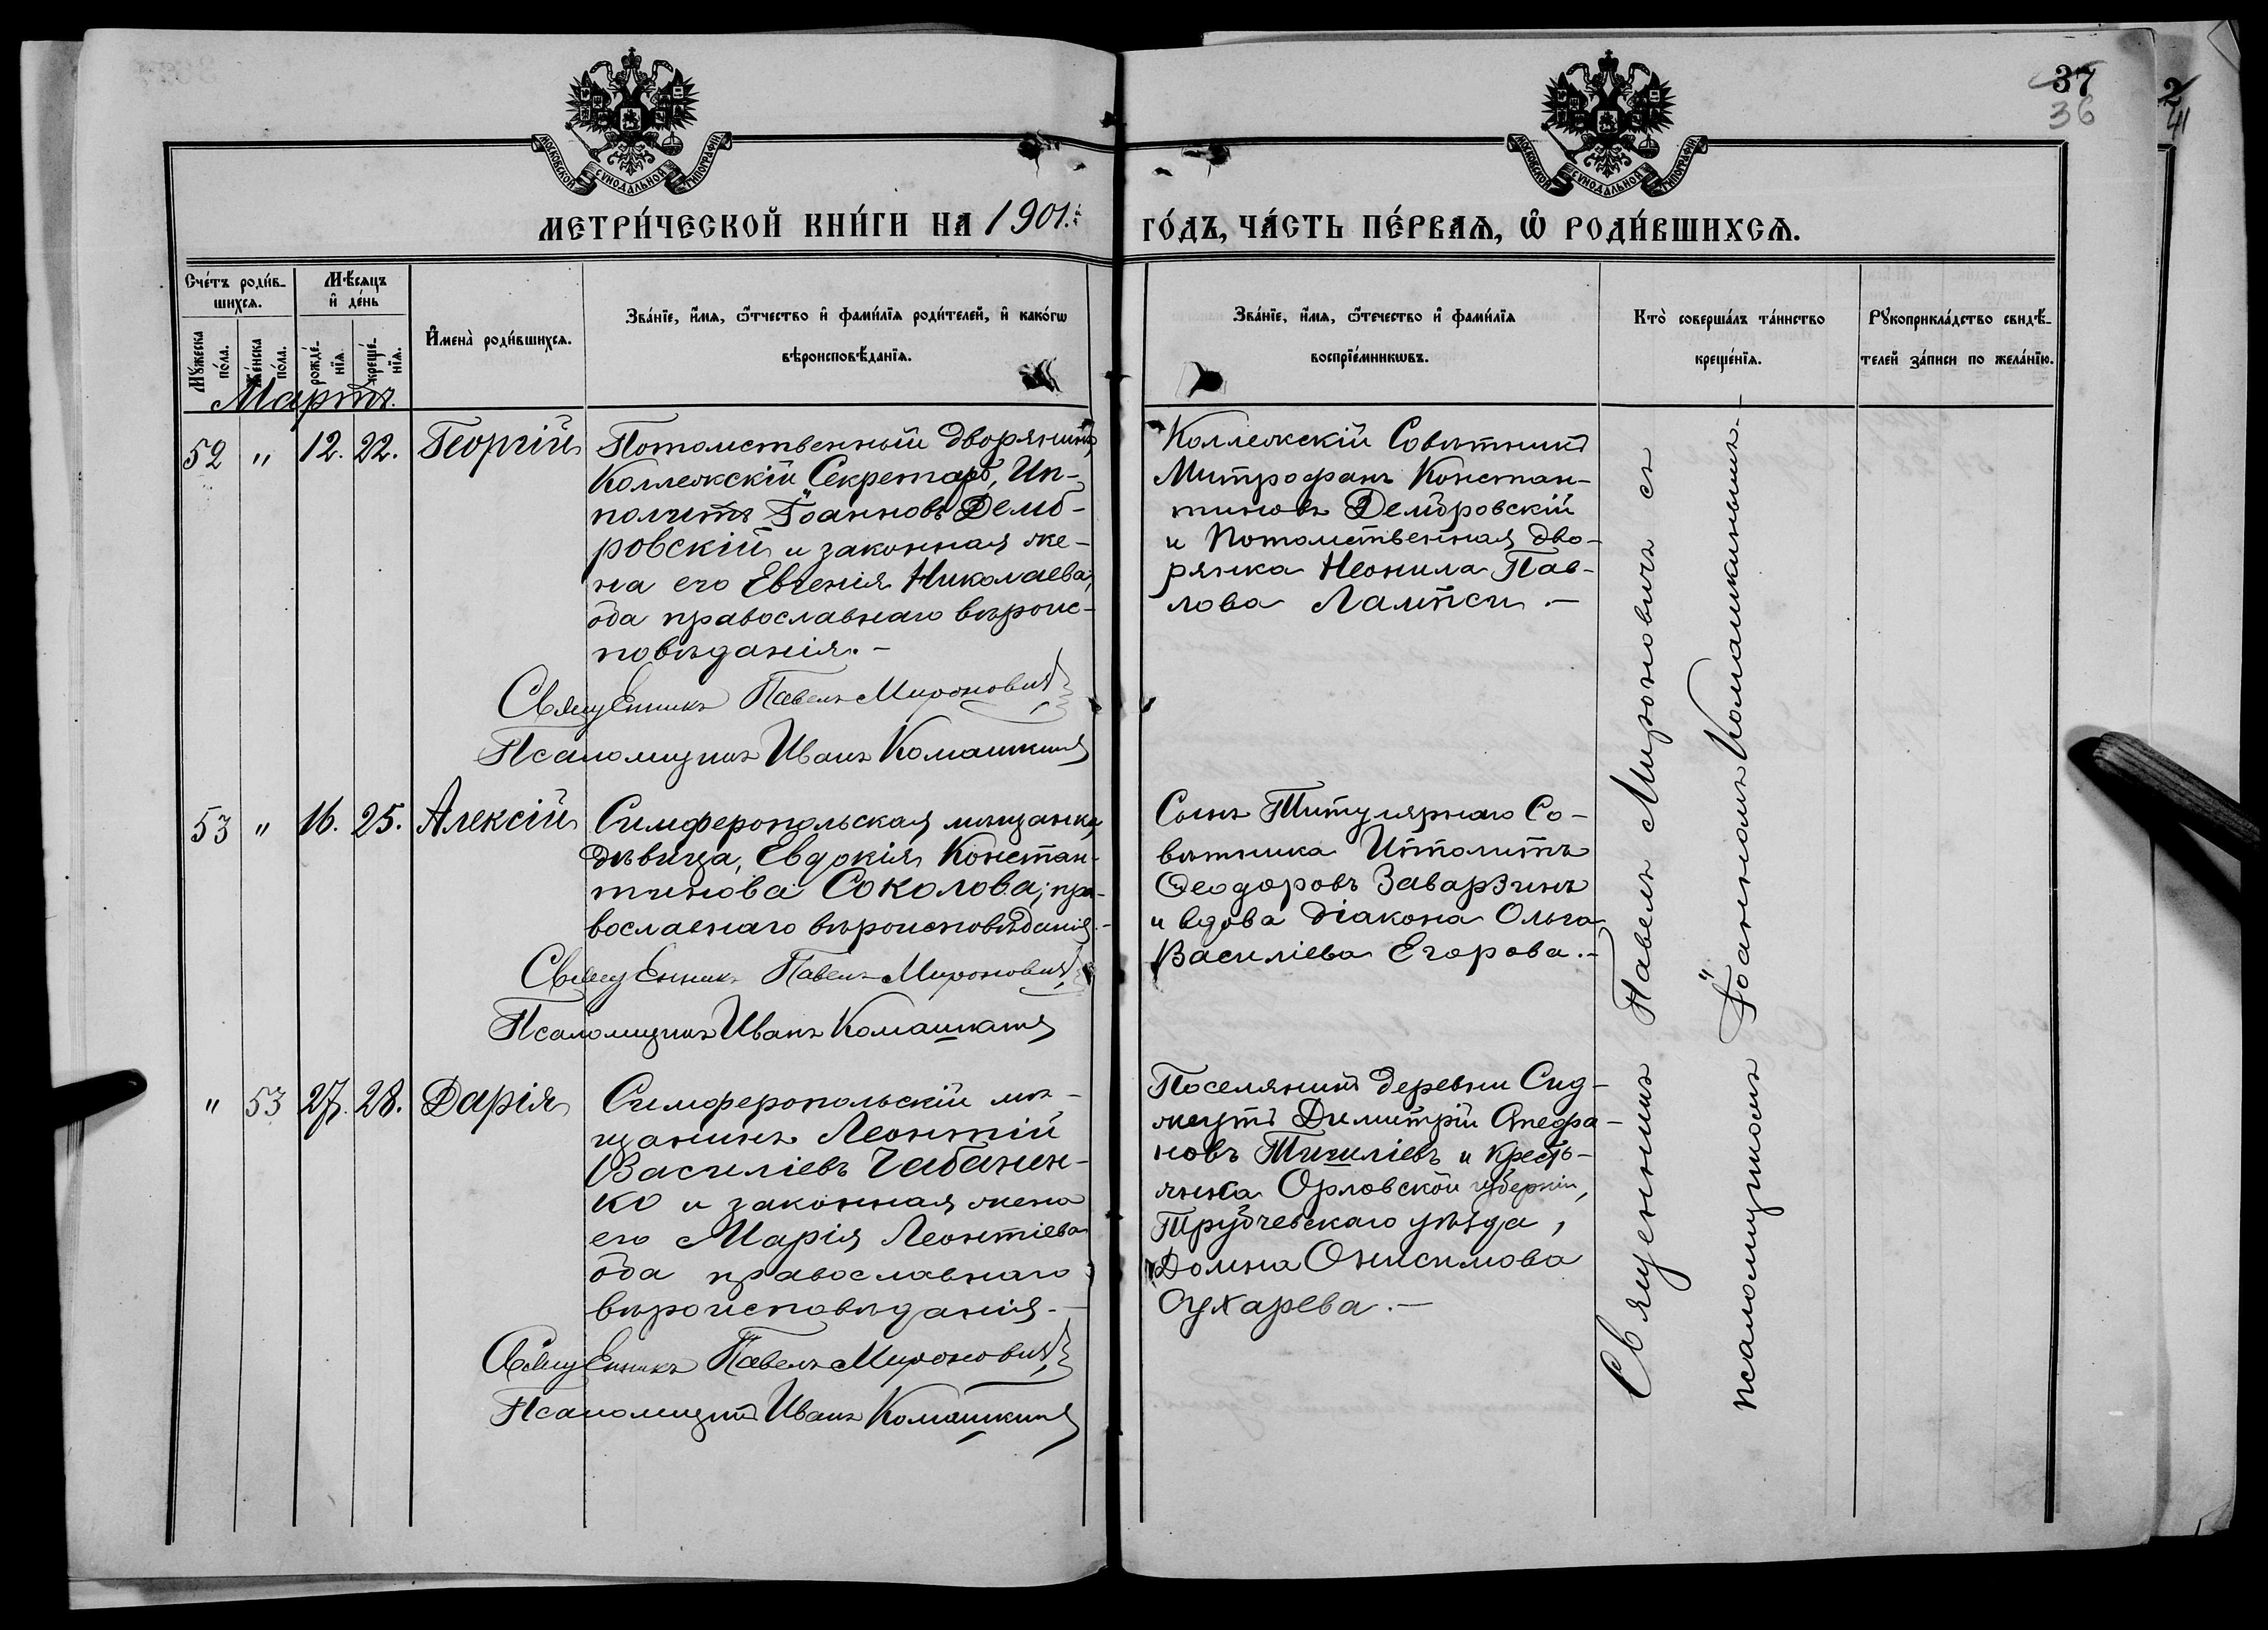 37
36
2
41
МОСКОВСКОЙ СѴНОДАЛЬНОЙ ТИПОГРАФІИ
МОСКОВСКОЙ СѴНОДАЛЬНОЙ ТИПОГРАФІИ
МЕТРИ́ЧЕСКОЙ КНИ́ГИ НА 1901.
ГО́ДЪ, ЧА́СТЬ ПЕ́РВАѦ, Ѽ РОДИ́ВШИХСѦ.
Сче́тъ роди́в-
шихсѧ.
Мѣ́сѧцъ
и҆ де́нь
Мꙋ́жеска по́ла.
Же́нска по́ла.
рожде́-нїѧ.
креще́-нїѧ.
И҆мена̀ роди́вшихсѧ.
Зва́нїе, и҆́мѧ, ѻ҆́тчество и҆ фами́лїѧ роди́телей, и҆ како́гѡ
вѣроисповѣ́данїѧ.
Зва́нїе, и҆́мѧ, ѻ҆́течество и҆ фами́лїѧ
воспрїе́мникѡвъ.
Кто̀ соверша́лъ та́инство
креще́нїѧ.
Рꙋкоприкла́дство свидѣ́-
телей за́писи по жела́нїю.
Мартъ.
52 " 12. 22. Георгій
Потомственный дворянинъ,
Коллежскій Секретарь, Ип-
политъ Іоанновъ Демб-
ровскій и законная же-
на его Евгенія Николаева,
оба православнаго вѣроис-
повѣданія.-
Священникъ Павелъ Мироновичъ
Псаломщикъ Иванъ Комашкинъ
Коллежскій Совѣтникъ
Митрофанъ Констан-
тиновъ Дембровскій
и Потомственная дво-
рянка Неонила Пав-
лова Лампси.-
53 " 16. 25. Алексій
Симферопольская мѣщанка,
дѣвица, Евдокія Констан-
тинова Соколова; пра-
вославнаго вѣроисповѣданія.-
Священникъ Павелъ Мироновичъ
Псаломщикъ Иванъ Комашкинъ
Сынъ Титулярнаго Со-
вѣтника Ипполитъ
Ѳеодоровъ Заварзинъ
и вдова діакона Ольга
Василіева Егорова.-
" 53 27. 28. Дарія
Симферопольскій мѣ-
щанинъ Леонтій
Василіевъ Чабанен-
ко и законная жена
его Марія Леонтіева
оба православнаго
вѣроисповѣданія.-
Священникъ Павелъ Мироновичъ
Псаломщикъ Иванъ Комашкинъ
Поселянинъ деревни Сид-
жутъ Димитрій Стефа-
новъ Тишиліевъ и кресть-
янка Орловской губерніи,
Трубчевскаго уѣзда,
Домна Онисимова
Сухарева.-
Священникъ Павелъ Мироновичъ съ
псаломщикомъ Іоанномъ Комашкинымъ.-